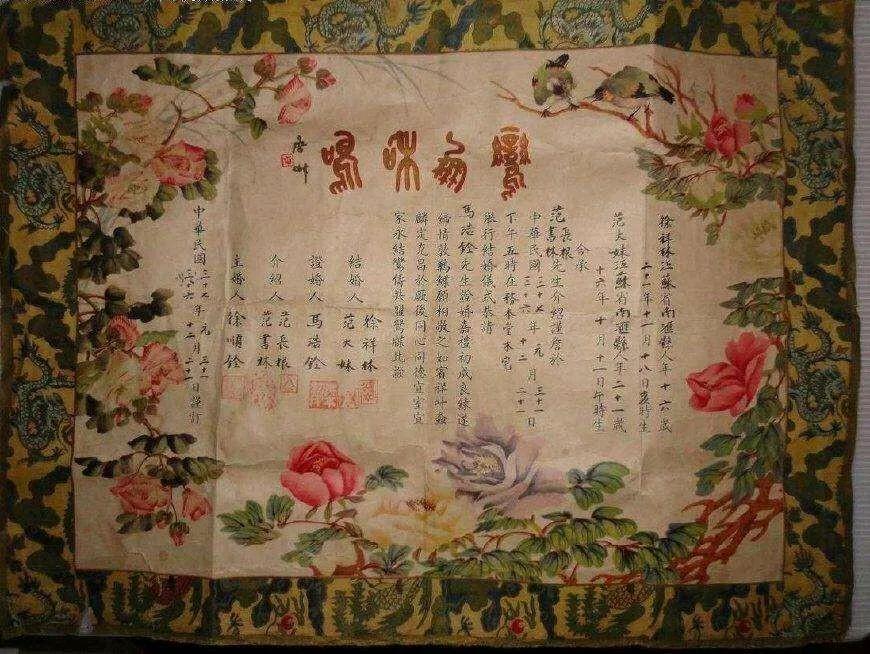 鸞鳳和鳴
徐祥林江蘇省南滙縣人年十六歲
二十一年十一月十八日寅時生
范大妹江蘇省南滙縣人年二十一歲
十六年十月十一日午時生
今承
范長根書林先生介紹謹詹於
中華民國三十七年元月三十一日
三十六 十二 二十一
下午五時在務本堂本宅
舉行結婚儀式恭請
馬浩銓先生證婚嘉禮初成良緣遂
締情敦鶼鰈願相敬之如賓祥叶螽
麟定克昌於厥後同心同德宜室宜
家永結鸞儔共盟鴛牒此證
結婚人 徐祥林
范大妹
證婚人 馬浩銓
介紹人 范長根
范書林
主婚人 徐順銓
中華民國三十七年元月三十一日謹訂
三十六 十二 二十一